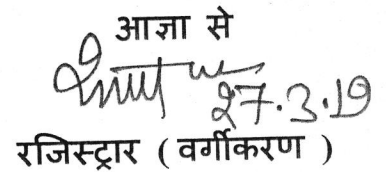 आज्ञा से
27.3.19
रजिस्ट्रार ( वर्गीकरण )